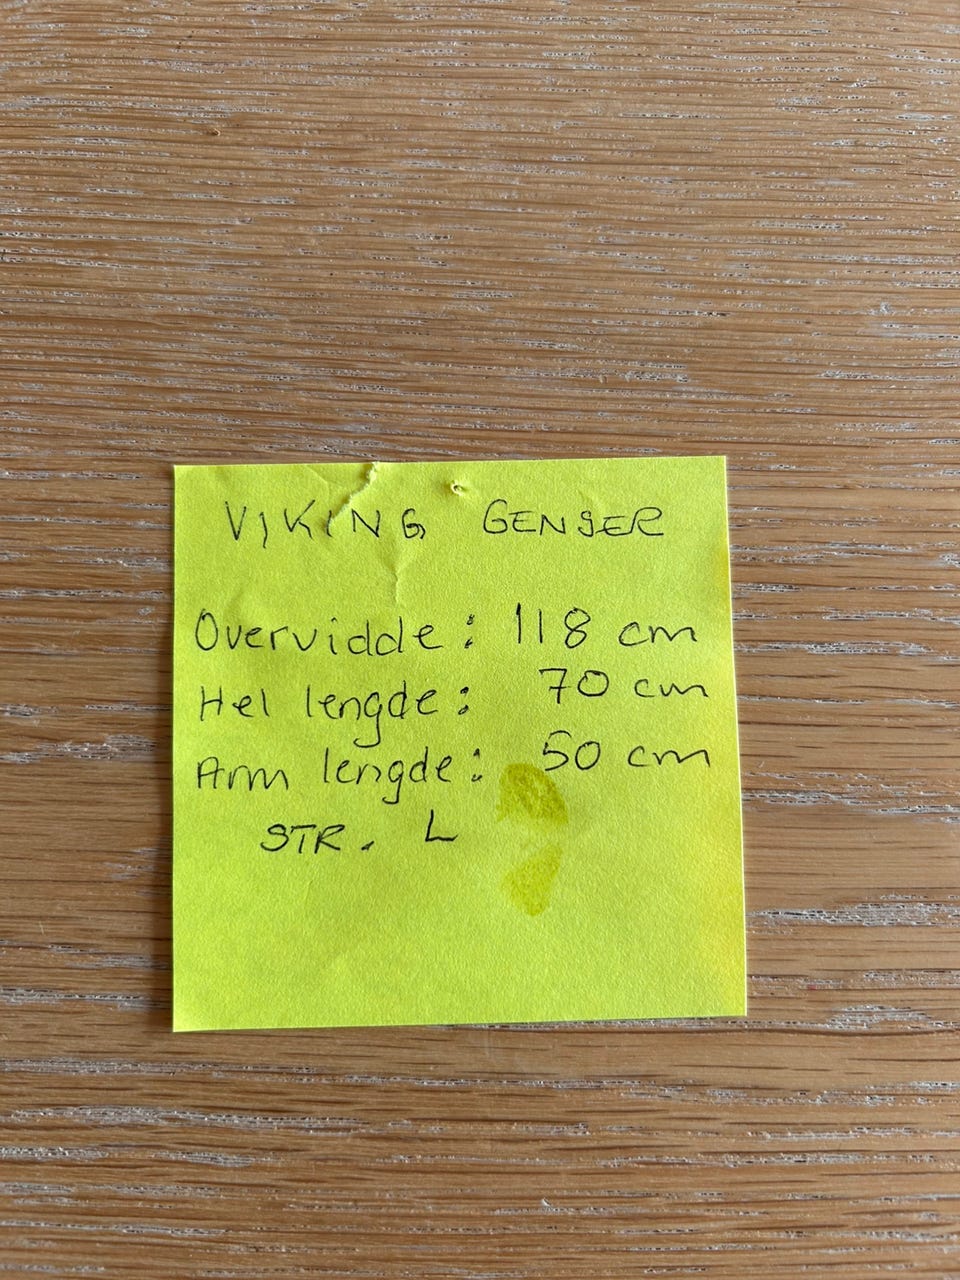 VIKING GENSER
Overvidde: 118 cm
Hel lengde: 70 cm
Arm lengde: 50 cm
STR. L